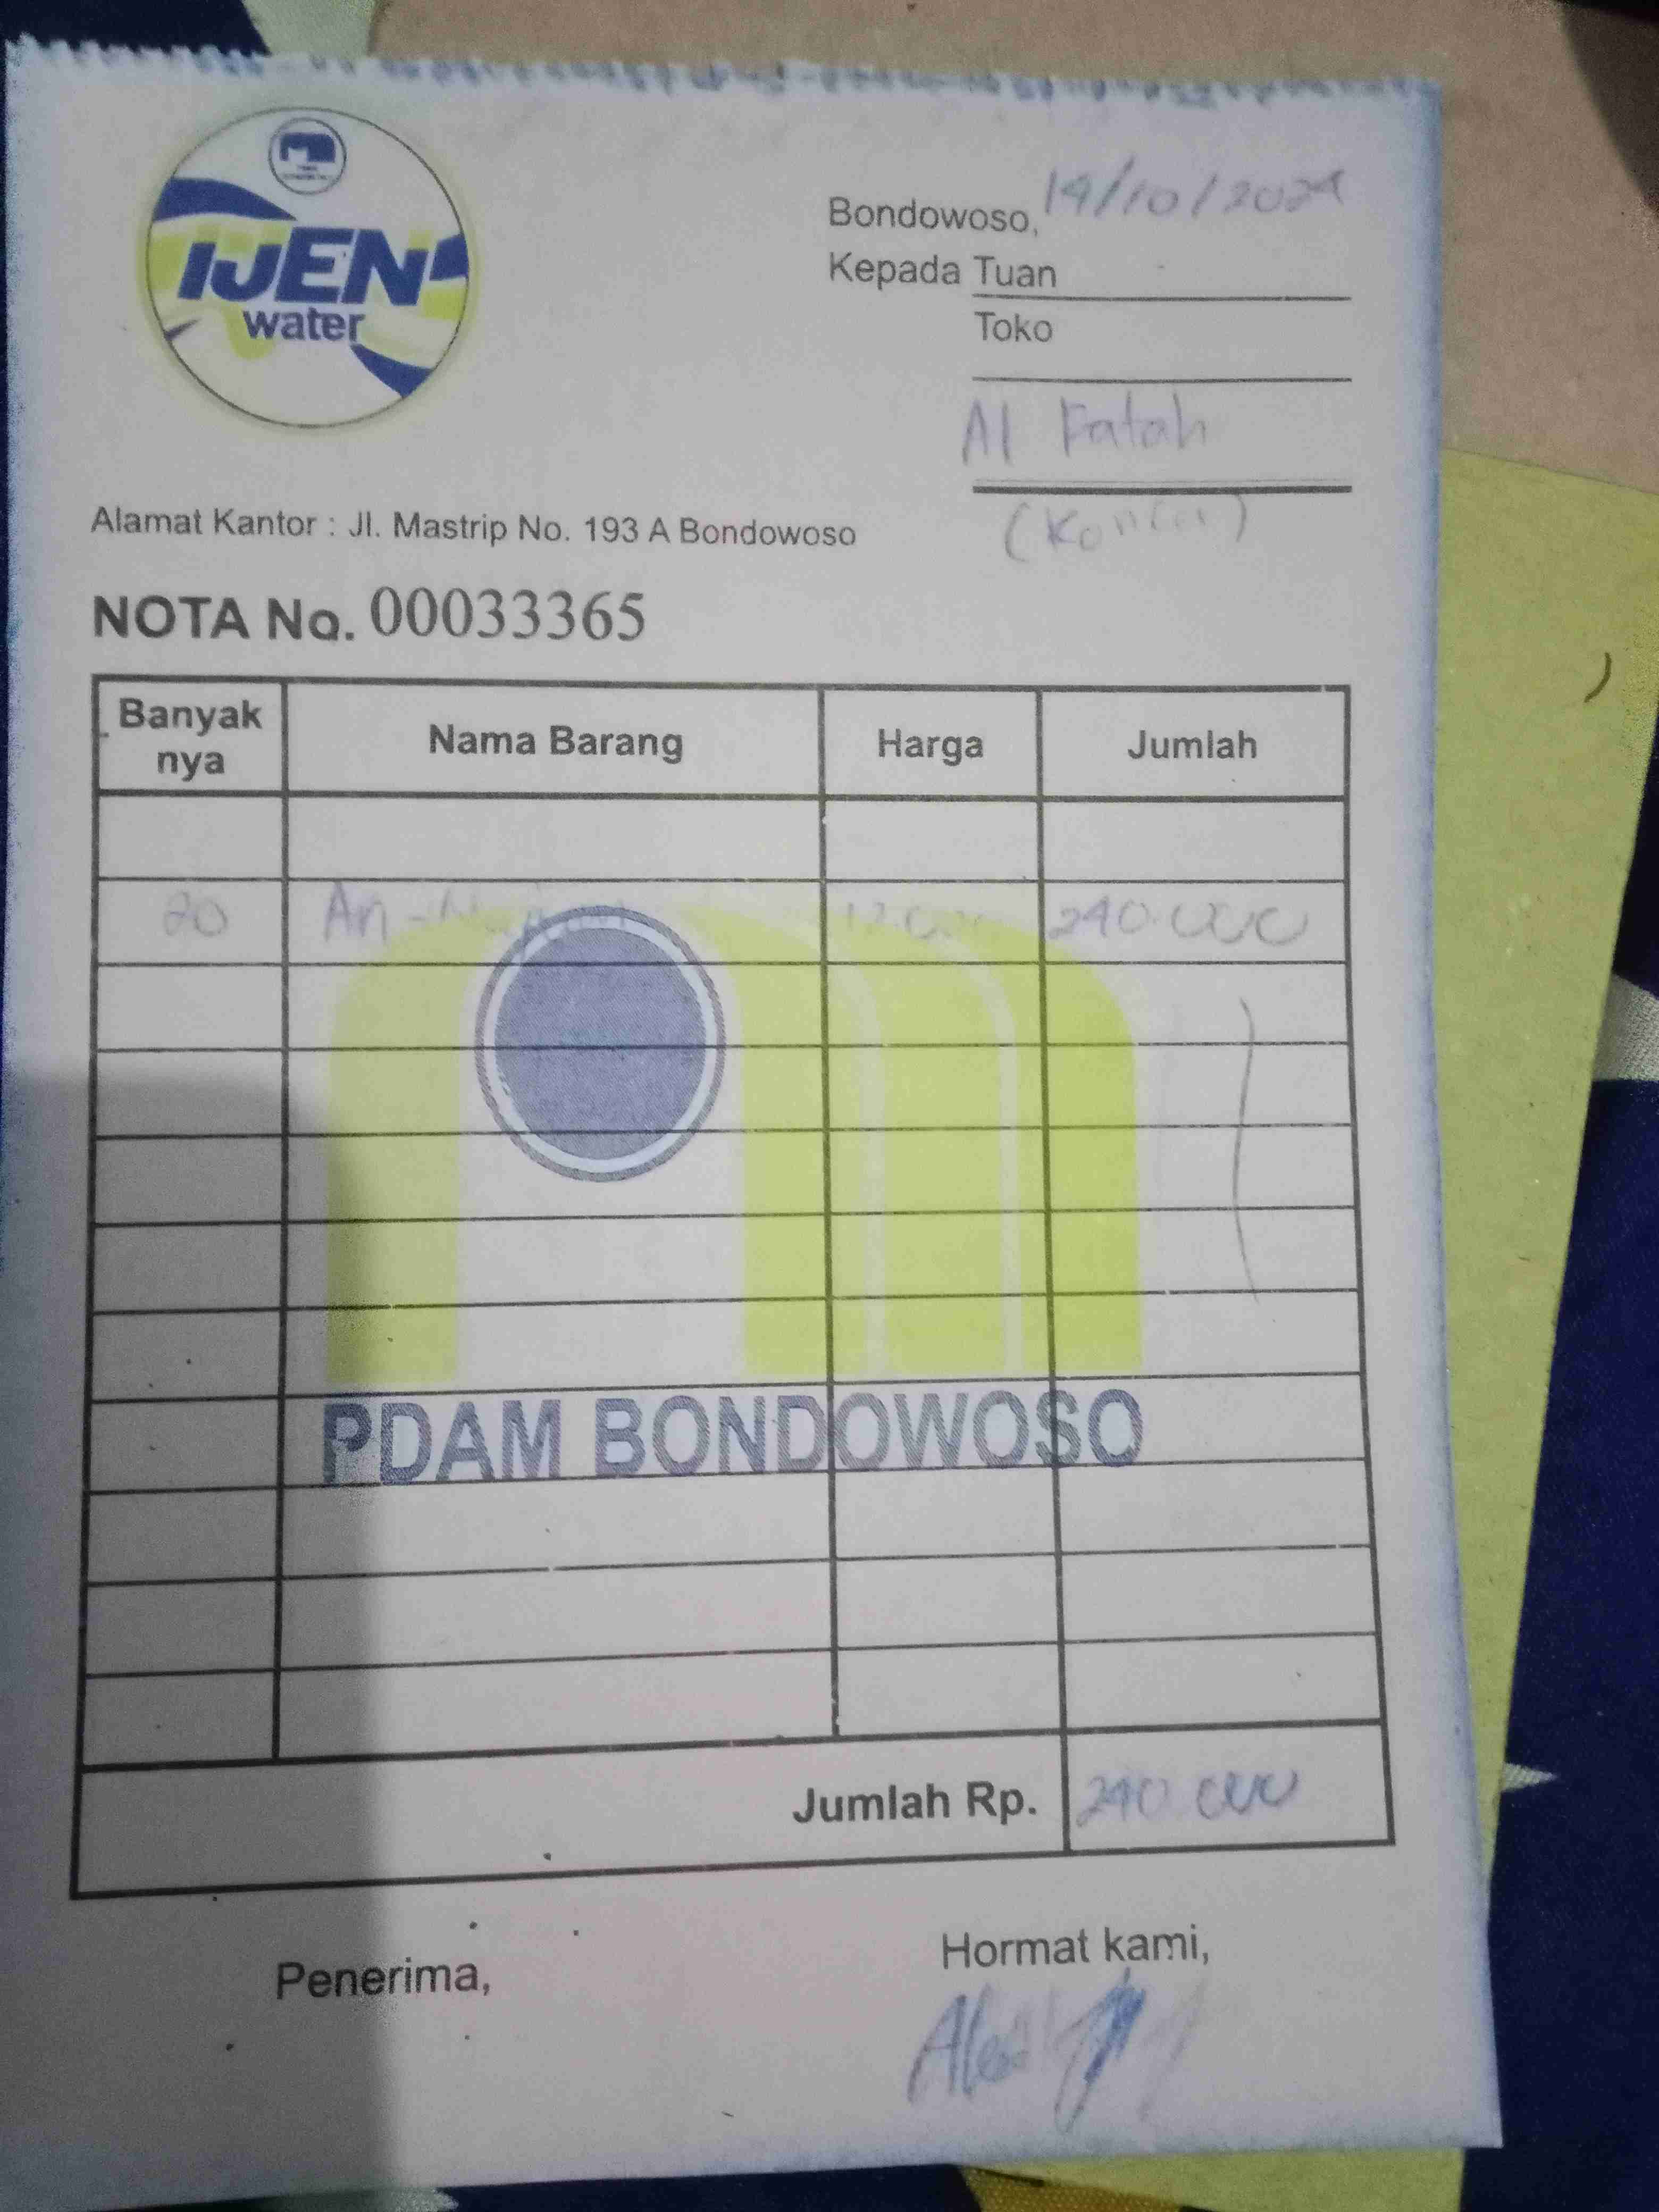 IJEN
water
Bondowoso, 14/10/2024
Kepada Tuan
Toko
Al Fatah
Alamat Kantor : Jl. Mastrip No. 193 A Bondowoso
NOTA No. 00033365
Banyak nya Nama Barang Harga Jumlah
20 An- 240.000
PDAM BONDOWOSO
Jumlah Rp. 240.000
Penerima, Hormat kami,